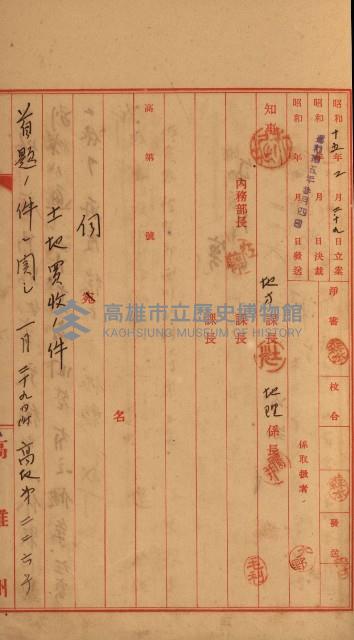 昭和十五年二月二十九日立案
昭和　年　月　日決裁
昭和　年　月　日發送
淨審
校合
發送
係取扱者
知事
內務部長
地方課長
課長
課長
地理係長
高　第　號
伺
宛　名
土地買收ノ件
首題ノ件ニ関シ一月二十九日附高地第二二六号
高雄州
高雄市立歷史博物館
KAOHSIUNG MUSEUM OF HISTORY